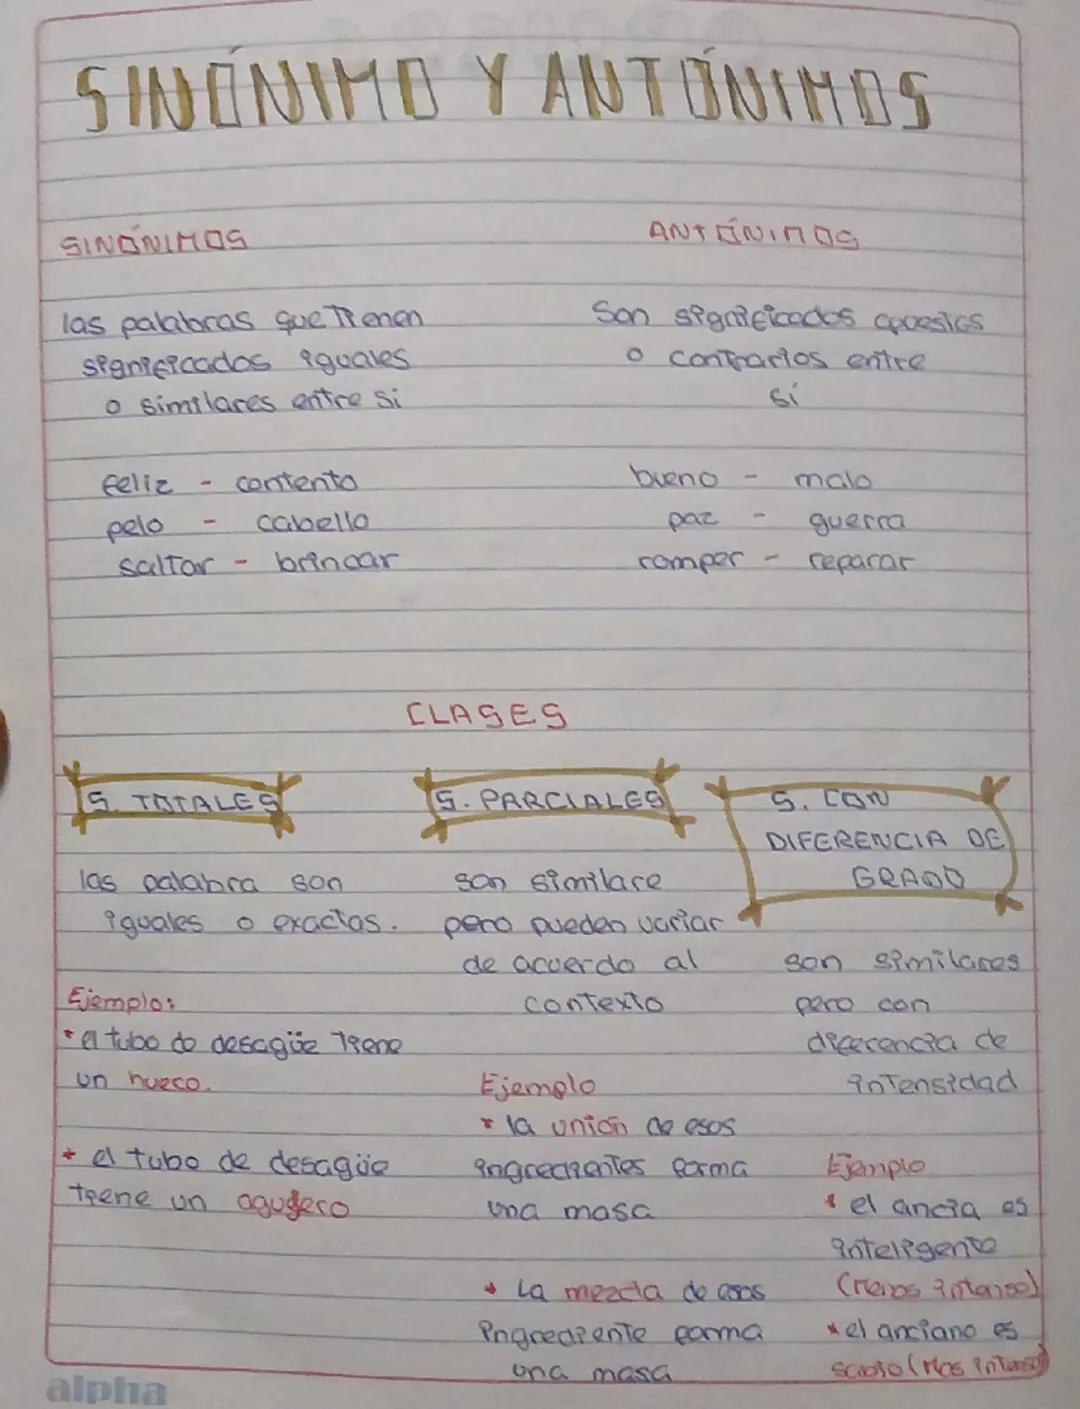 SINÓNIMO Y ANTÓNIMOS
SINÓNIMOS
las palabras que tienen
significados iguales
o similares entre si
feliz - contento
pelo - cabello
saltar - brincar
ANTÓNIMOS
Son significados opuestos
o contrarios entre
sí
bueno - malo
paz - guerra
romper - reparar
CLASES
S. TOTALES
las palabra son
iguales o exactas.
Ejemplo:
* el tubo de desagüe tiene
un hueco.
* el tubo de desagüe
tiene un agugero
S. PARCIALES
son similare
pero pueden variar
de acuerdo al
contexto
Ejemplo
* la unión de esos
ingredientes forma
una masa
* La mezcla de esos
ingrediente forma
una masa
S. CON
DIFERENCIA DE
GRADO
son similares
pero con
diferencia de
intensidad
Ejemplo
* el ancia es
inteligente
(menos intenso)
* el anciano es
sabio (Mas intenso)
alpha